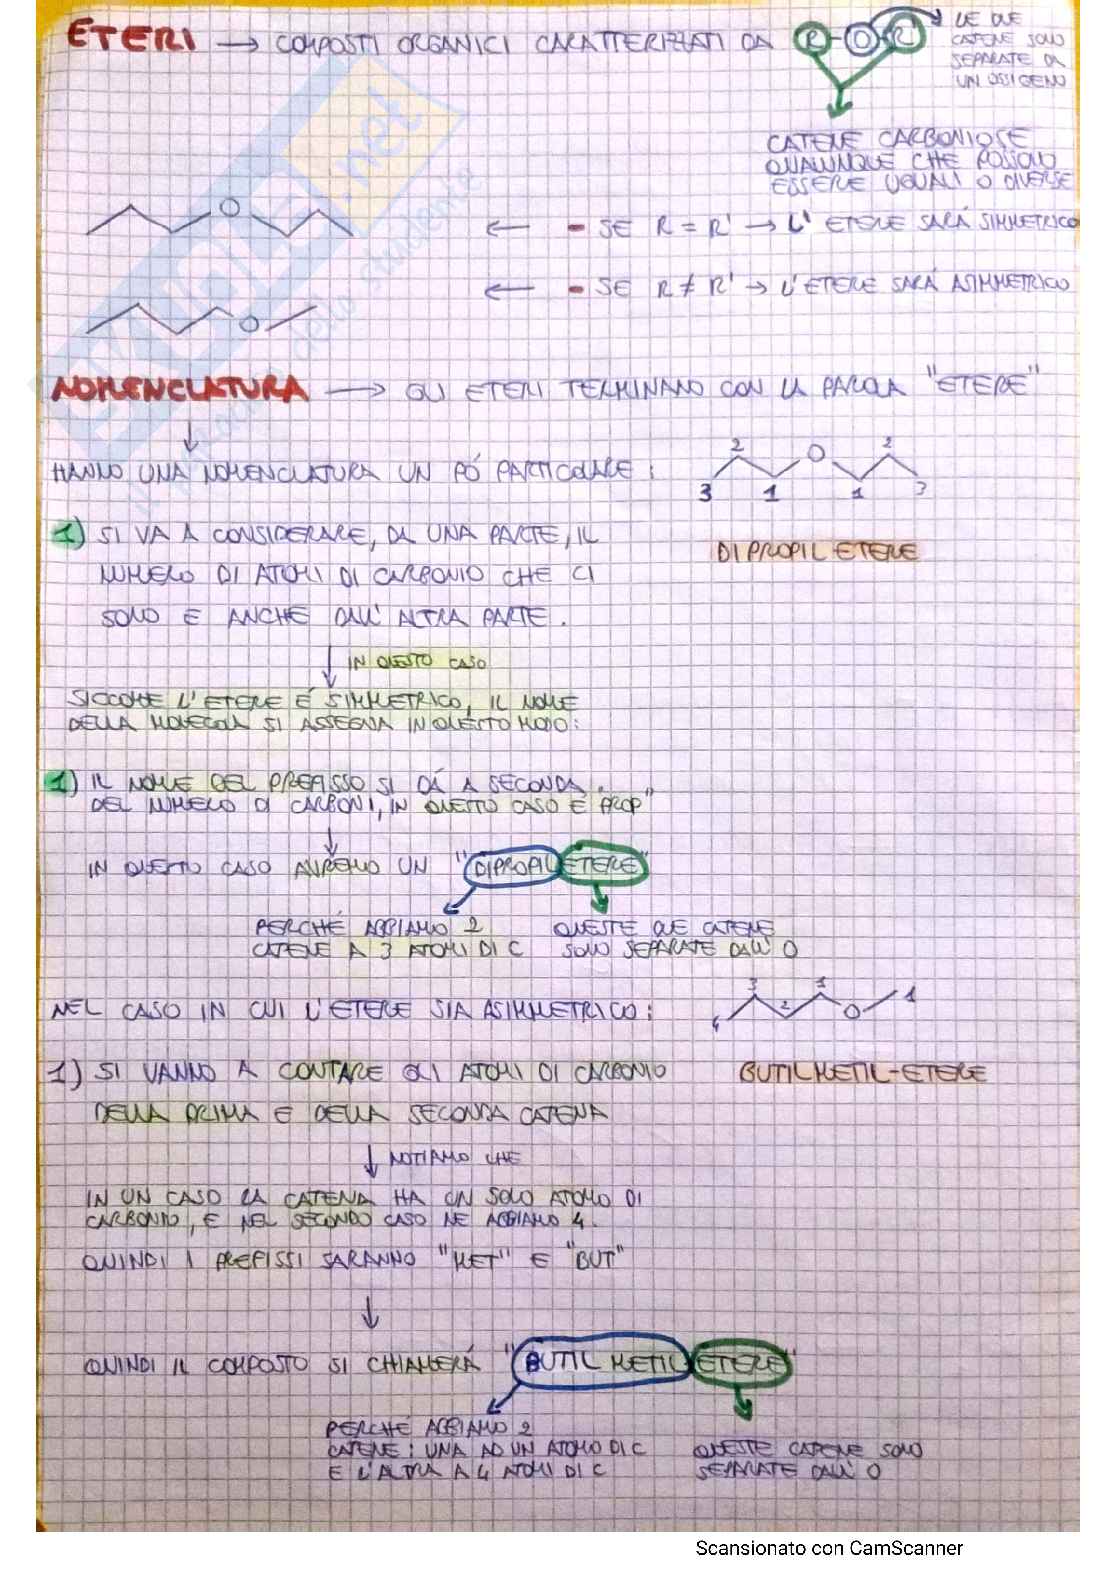 ETERI → COMPOSTI ORGANICI CARATTERIZZATI DA R-O-R
LE DUE
CATENE SONO
SEPARATE DA
UN OSSIGENO
CATENE CARBONIOSE
QUALUNQUE CHE POSSONO
ESSERE UGUALI O DIVERSE
O
← - SE R = R' → L'ETERE SARÁ SIMMETRICO
← - SE R ≠ R' → L'ETERE SARÁ ASIMMETRICO
O
NOMENCLATURA → GLI ETERI TERMINANO CON LA PAROLA "ETERE"
HANNO UNA NOMENCLATURA UN PÓ PARTICOLARE:
2 O 2
3 1 1 3
1) SI VA A CONSIDERARE, DA UNA PARTE, IL
NUMERO DI ATOMI DI CARBONIO CHE CI
SONO E ANCHE DALL'ALTRA PARTE.
DIPROPIL ETERE
↓ IN QUESTO CASO
SICCOME L'ETERE É SIMMETRICO, IL NOME
DELLA MOLECOLA SI ASSEGNA IN QUESTO MODO:
1) IL NOME DEL PREFISSO SI DÁ A SECONDA
DEL NUMERO DI CARBONI, IN QUESTO CASO É "PROP"
↓
IN QUESTO CASO AVREMO UN "DIPROPILETERE"
PERCHÉ ABBIAMO 2
CATENE A 3 ATOMI DI C
QUESTE DUE CATENE
SONO SEPARATE DALL'O
NEL CASO IN CUI L'ETERE SIA ASIMMETRICO:
4 3 2 1 O 1
1) SI VANNO A CONTARE GLI ATOMI DI CARBONIO
DELLA PRIMA E DELLA SECONDA CATENA
BUTILMETIL-ETERE
↓ NOTIAMO CHE
IN UN CASO LA CATENA HA UN SOLO ATOMO DI
CARBONIO, E NEL SECONDO CASO NE ABBIAMO 4.
QUINDI I PREFISSI SARANNO "MET" E "BUT"
↓
QUINDI IL COMPOSTO SI CHIAMERÁ "BUTIL METIL ETERE"
PERCHÉ ABBIAMO 2
CATENE: UNA AD UN ATOMO DI C
E L'ALTRA A 4 ATOMI DI C
QUESTE CATENE SONO
SEPARATE DALL'O
Scansionato con CamScanner